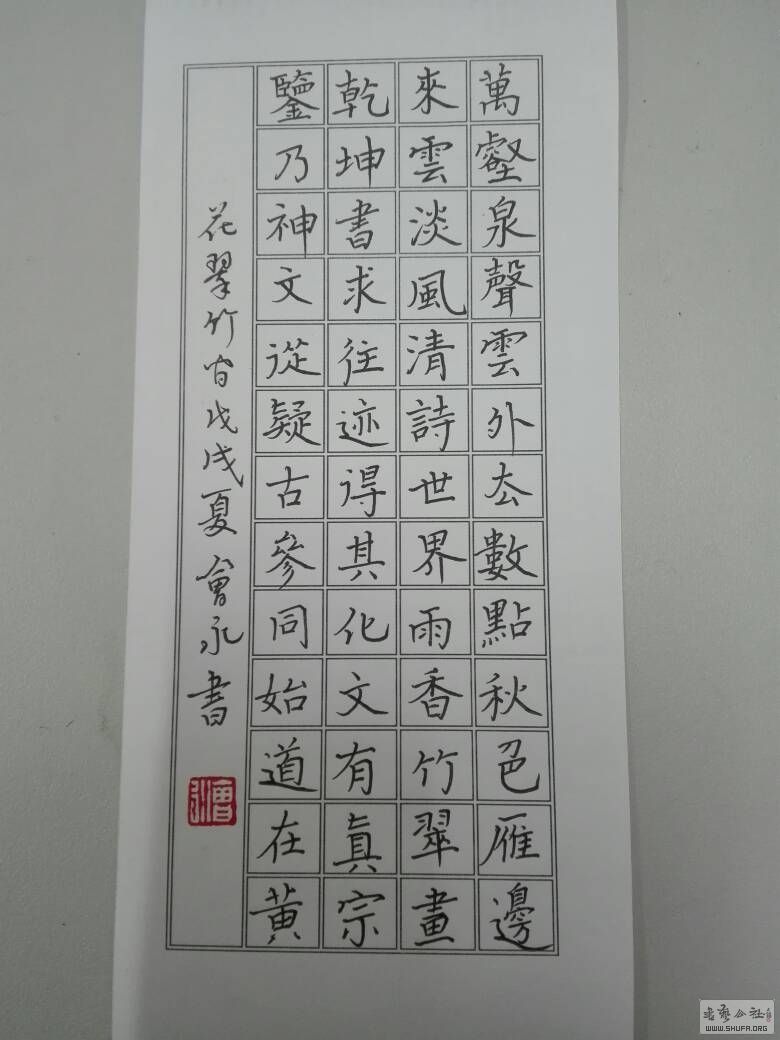 萬壑泉聲雲外厺數點秋色雁邊
來雲淡風清詩世界雨香竹翠畫
乾坤書求往迹得其化文有真宗
鑒乃神文從疑古參同始道在黄
花翠竹间戊戌夏會永書
會永
書藝公社
WWW.SHUFA.ORG